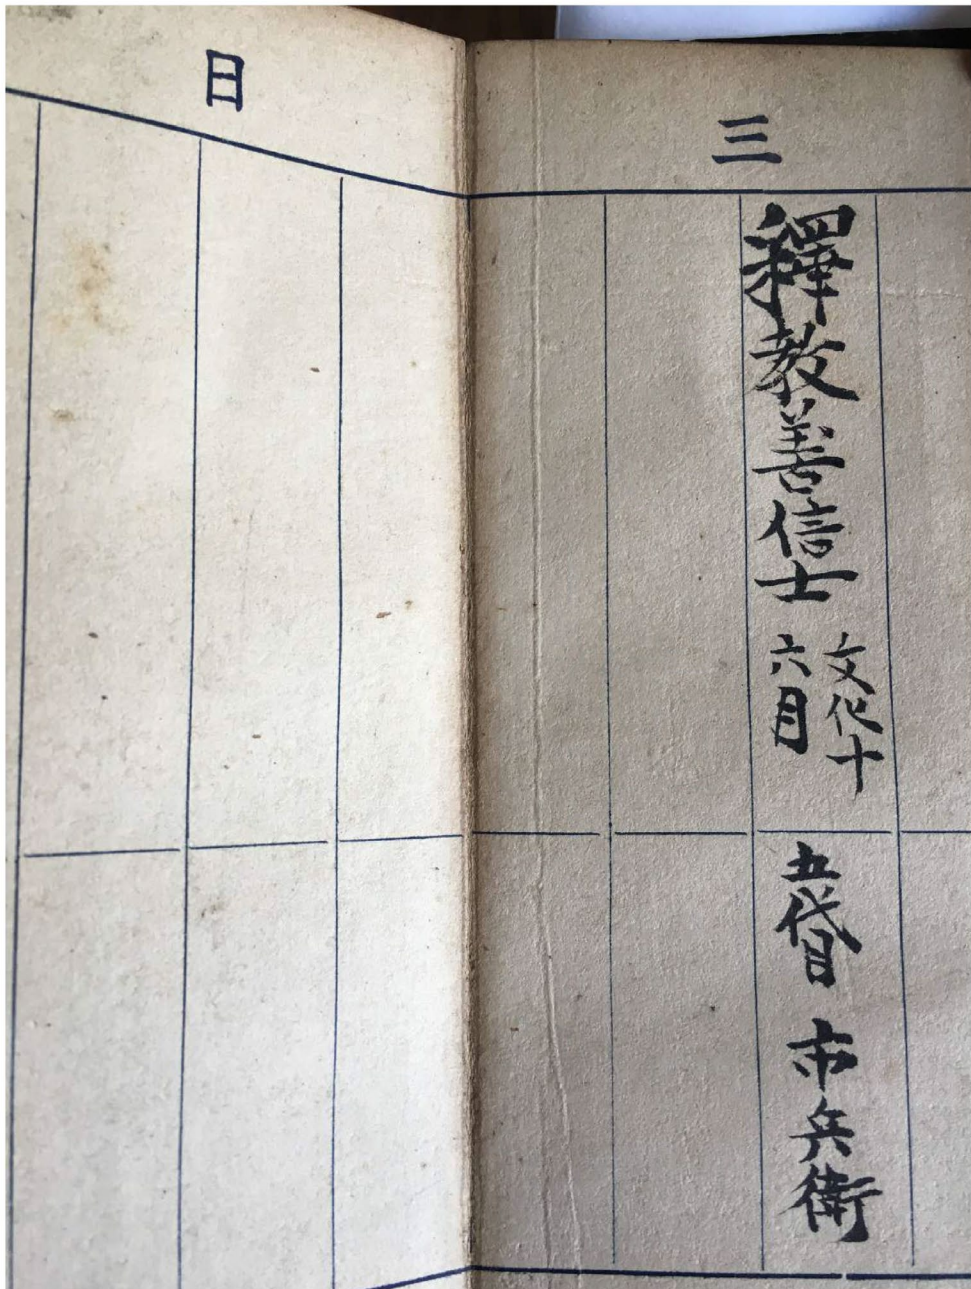 三日
釋教善信士
文化十
六月
五代目 市兵衛